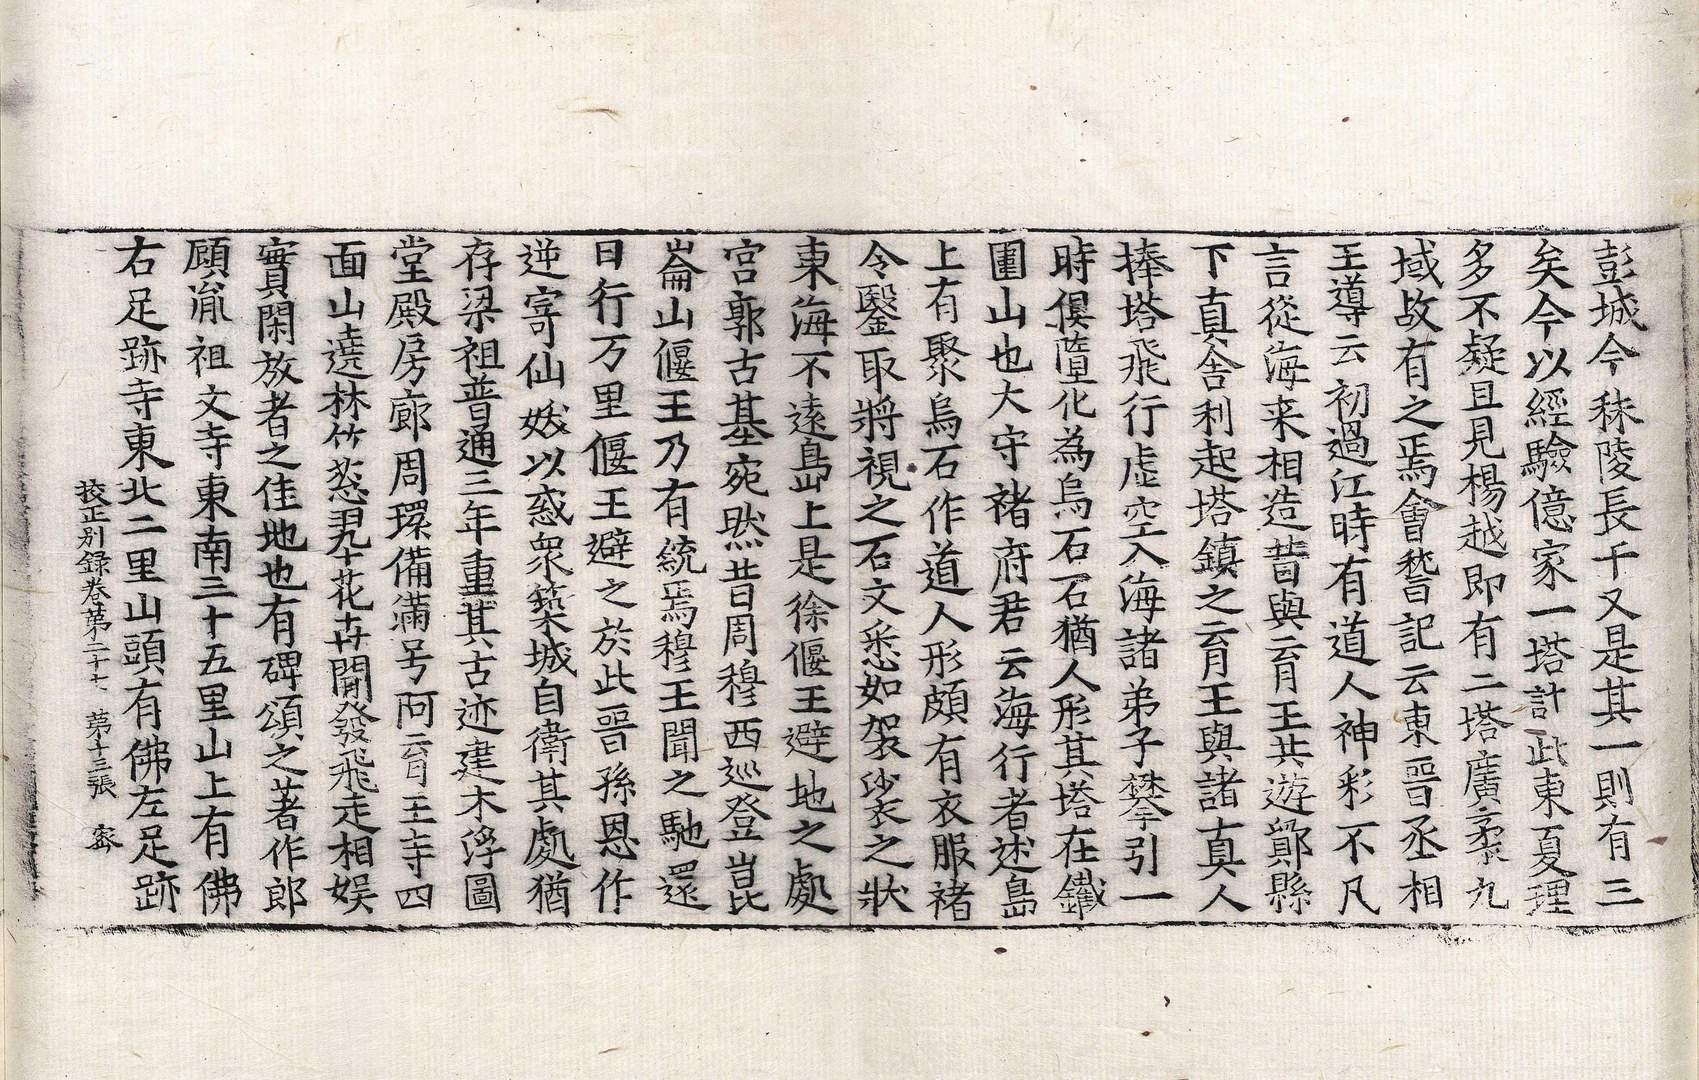 彭城今秣陵長干又是其一則有三
矣今以經驗億家一塔計此東夏理
多不疑且見楊越即有二塔廣柔九
域故有之焉會稽記云東晉丞相
王導云初過江時有道人神彩不凡
言從海来相造昔與育王共遊鄮縣
下真舍利起塔鎮之育王與諸真人
捧塔飛行虛空入海諸弟子攀引一
時俱墮化為烏石石猶人形其塔在鐵
圍山也大守褚府君云海行者述島
上有聚烏石作道人形頗有衣服褚
令鑿取將視之石文悉如袈裟之狀
東海不遠島上是徐偃王避地之處
宮郭古基宛然昔周穆西巡登崑
崙山偃王乃有統焉穆王聞之馳還
日行万里偃王避之於此晉孫恩作
逆寄仙妖以惑衆築城自衛其處猶
存梁祖普通三年重其古迹建木浮圖
堂殿房廊周環備滿号阿育王寺四
面山遶林竹葱翠花卉間發飛走相娛
實閑放者之佳地也有碑頌之著作郎
顧胤祖文寺東南三十五里山上有佛
右足跡寺東北二里山頭有佛左足跡
挍正別錄卷第二十七 第十三張 密